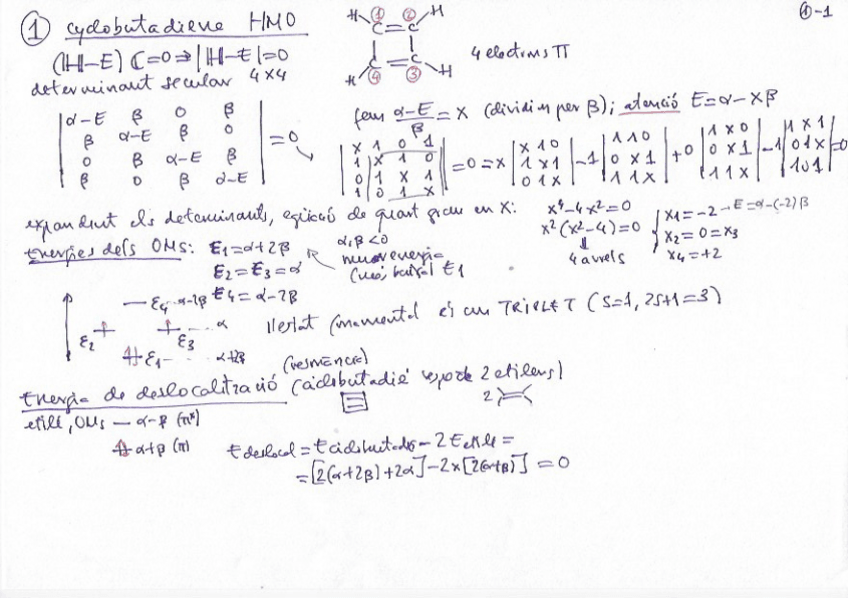 ①-1
① cyclobutadiene HMO
(H-E) C=0 ⇒ |H-E|=0
determinant secular 4x4
H ① ② H
C = C
C = C
H ④ ③ H
4 electrons π
α-E β 0 β
β α-E β 0
0 β α-E β
β 0 β α-E
=0
fem α-E/β = x (dividim per β); atenció E=α-xβ
x 1 0 1
1 x 1 0
0 1 x 1
1 0 1 x
=0=x
x 1 0
1 x 1
0 1 x
-1
1 1 0
0 x 1
1 1 x
+0
1 x 0
0 x 1
1 1 x
-1
1 x 1
0 1 x
1 0 1
=0
expandint els determinants, equació de quart grau en x: x⁴-4x²=0
x²(x²-4)=0
4 arrels
x₁=-2 → E=α-(-2)β
x₂=0=x₃
x₄=+2
Energies dels OMs: E₁=α+2β
E₂=E₃=α
E₄=α-2β
α,β<0
menor energia
E₁
E₄ α-2β
E₂ E₃ α
E₁ α+2β
l'estat fonamental és un TRIPLET (S=1, 2S+1=3)
(ressonància)
Energia de deslocalització (ciclobutadiè respecte 2 etilens)
2
etilè, OMs α-β (π*)
α+β (π)
E deslocal = E ciclobutadiè - 2 E etilè =
=[2(α+2β)+2α]-2x[2(α+β)] = 0